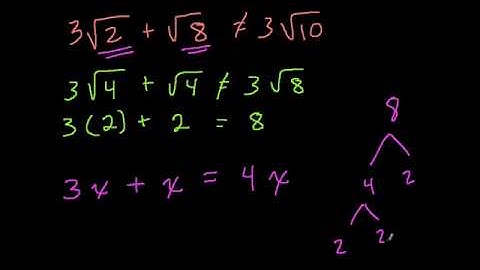 3√2 + √8 ≠ 3√10
3√4 + √4 ≠ 3√8
3(2) + 2 = 8
3x + x = 4x
8
4 2
2 2